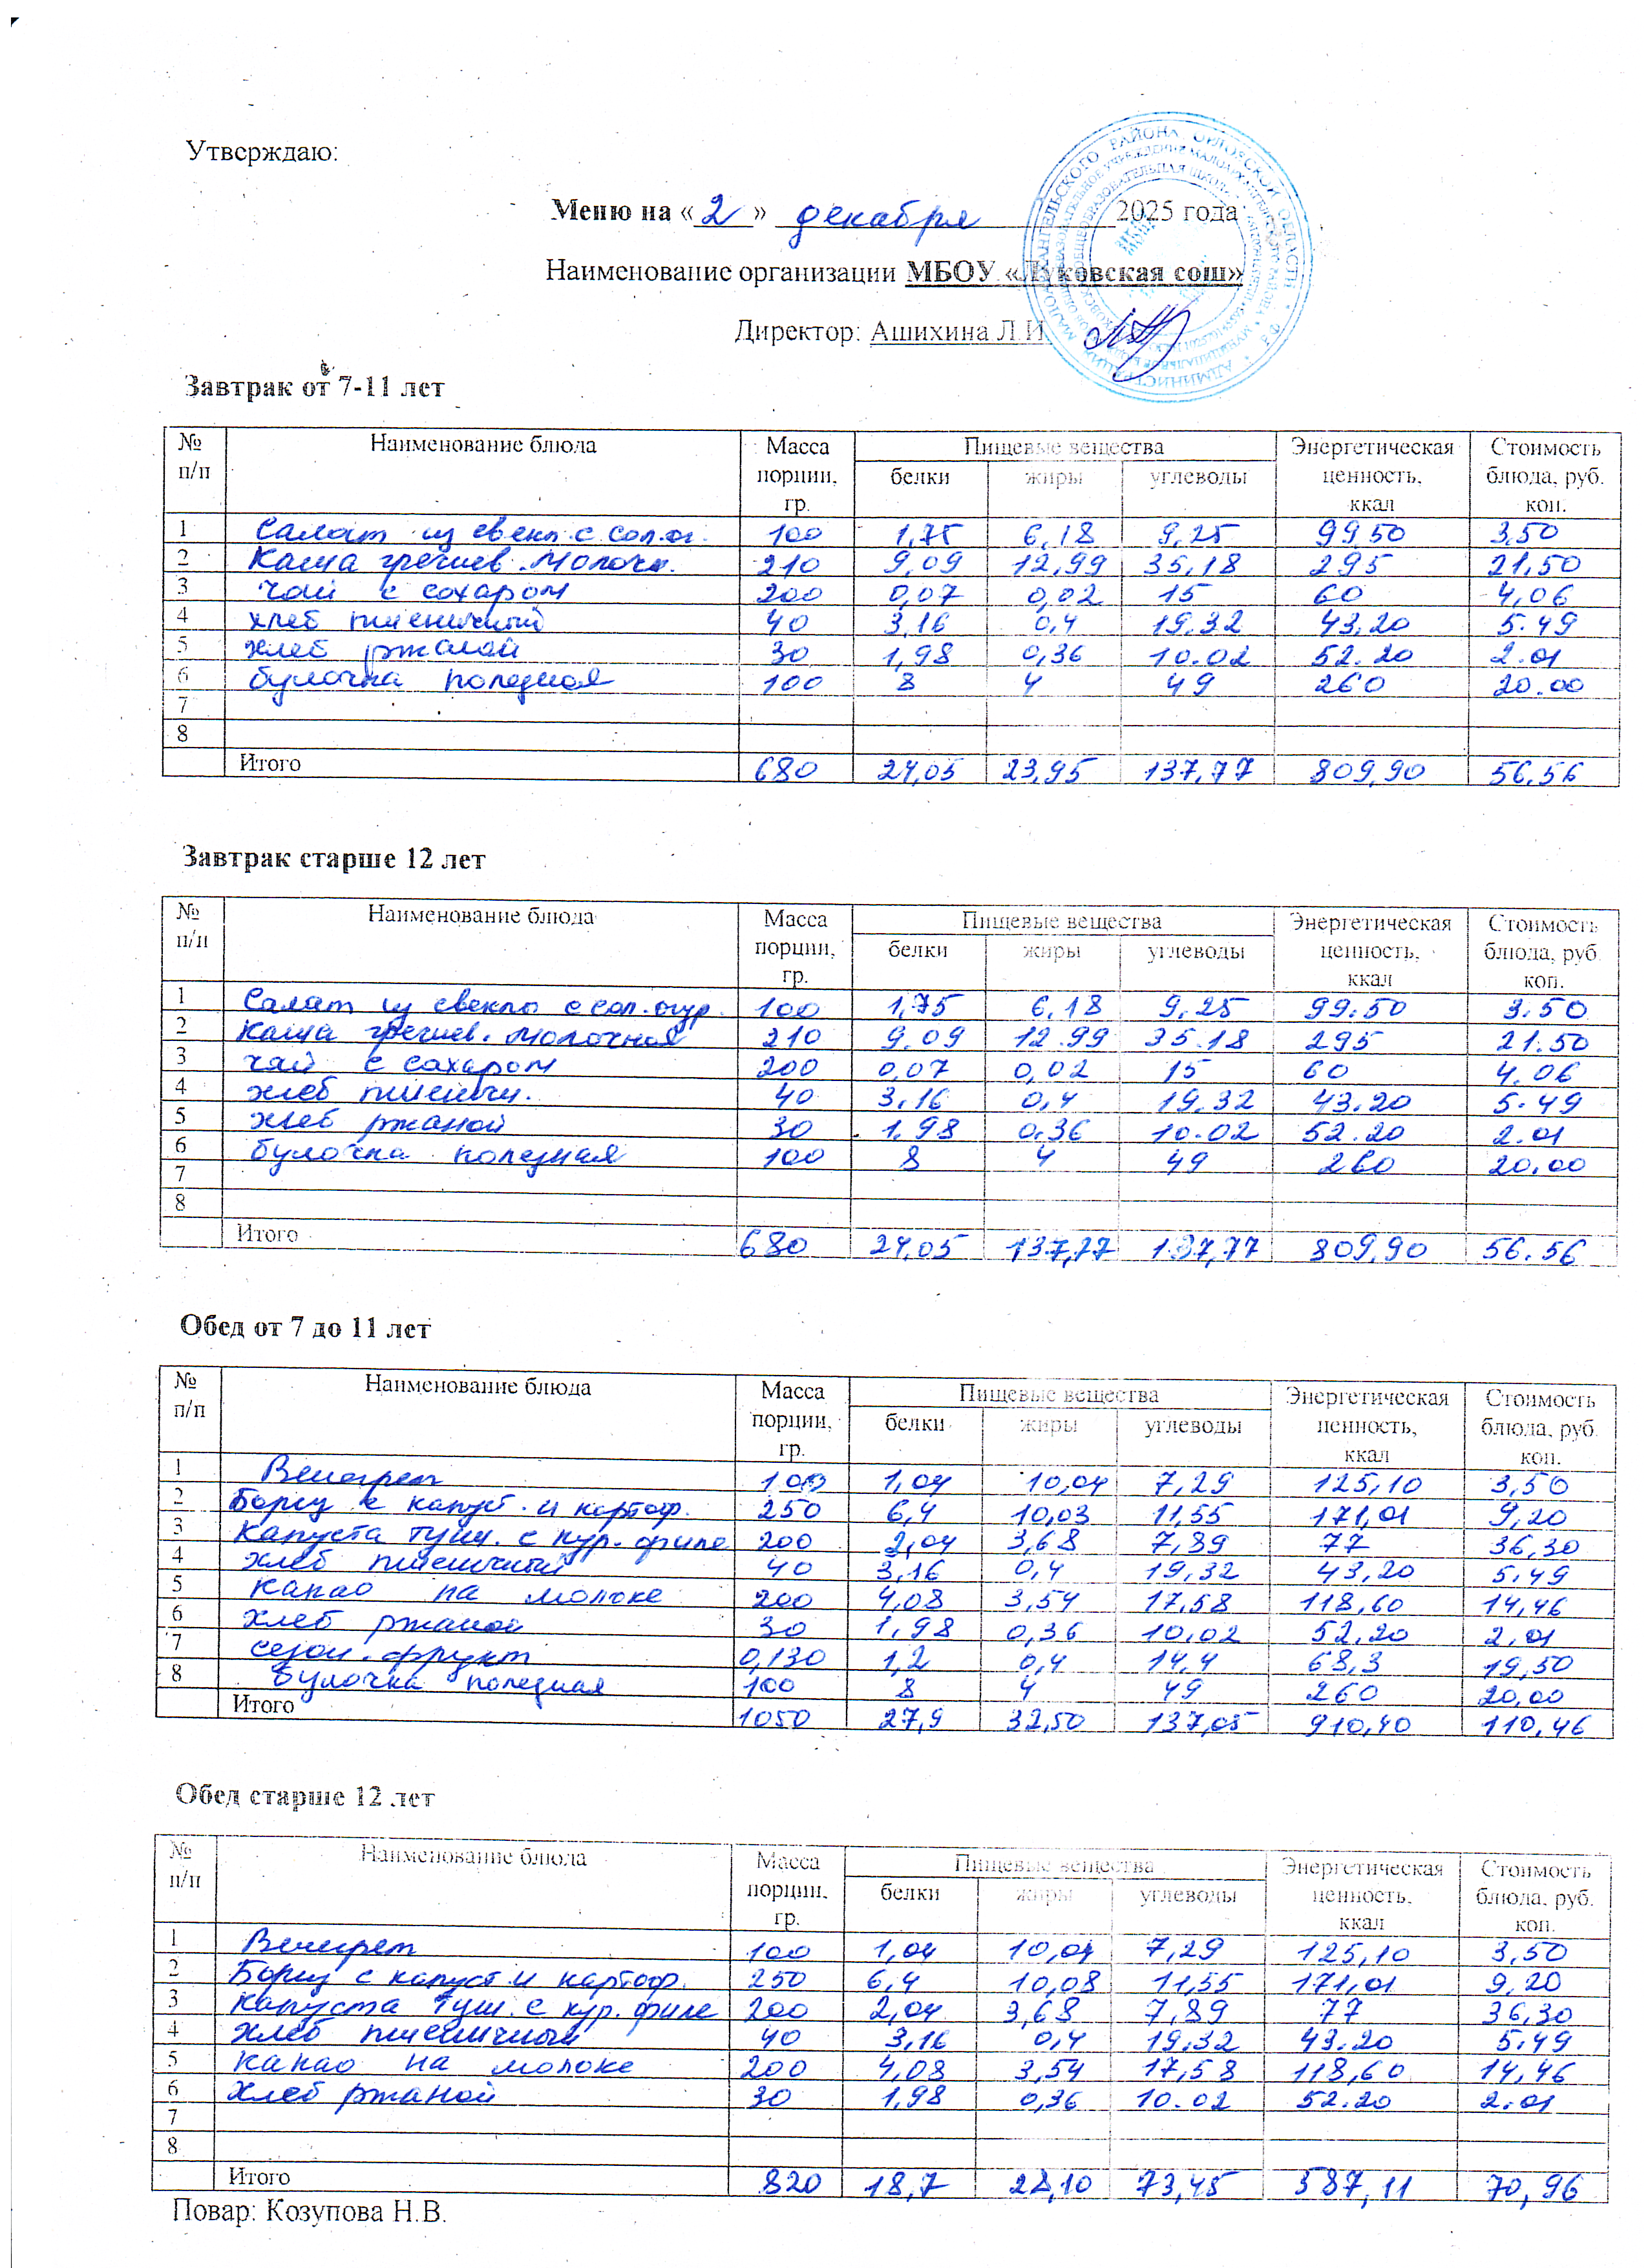 Утверждаю:
Меню на «2» декабря 2025 года
Наименование организации МБОУ «Луковская сош»
Директор: Ашихина Л.И.
Завтрак от 7-11 лет
№ п/п Наименование блюда Масса порции, гр. Пищевые вещества Энергетическая ценность, ккал Стоимость блюда, руб. коп.
белки жиры углеводы
1 Салат из свекл. с сол.ог. 100 1,75 6,18 9,25 99,50 3,50
2 Каша гречнев. молочн. 210 9,09 12,99 35,18 295 21,50
3 чай с сахаром 200 0,07 0,02 15 60 4,06
4 хлеб пшеничный 40 3,16 0,4 19,32 43,20 5.49
5 хлеб ржаной 30 1,98 0,36 10.02 52.20 2.01
6 булочка полезная 100 8 4 49 260 20.00
7
8
Итого 680 24,05 23,95 137,77 809,90 56.56
Завтрак старше 12 лет
№ п/п Наименование блюда Масса порции, гр. Пищевые вещества Энергетическая ценность, ккал Стоимость блюда, руб. коп.
белки жиры углеводы
1 Салат из свеклы с сол.огур. 100 1,75 6,18 9,25 99.50 3.50
2 каша гречнев. молочная 210 9.09 12.99 35.18 295 21.50
3 чай с сахаром 200 0,07 0,02 15 60 4.06
4 хлеб пшеничн. 40 3.16 0,4 19.32 43.20 5.49
5 хлеб ржаной 30 1.98 0.36 10.02 52.20 2.01
6 булочка полезная 100 8 4 49 260 20,00
7
8
Итого 680 24,05 137,77 137,77 809,90 56.56
Обед от 7 до 11 лет
№ п/п Наименование блюда Масса порции, гр. Пищевые вещества Энергетическая ценность, ккал Стоимость блюда, руб. коп.
белки жиры углеводы
1 Венегрет 100 1,04 10,04 7,29 125,10 3,50
2 Борщ с капуст. и картоф. 250 6,4 10,03 11,55 171,01 9,20
3 капуста туш. с кур. филе 200 2,04 3,68 7,89 77 36,30
4 хлеб пшеничный 40 3,16 0,4 19,32 43,20 5.49
5 какао на молоке 200 4,08 3,54 17,58 118,60 14,46
6 хлеб ржаной 30 1,98 0,36 10,02 52,20 2,01
7 сезон. фрукт 0,130 1,2 0,4 14,4 63,3 19,50
8 булочка полезная 100 8 4 49 260 20,00
Итого 1050 27,9 32,50 137,05 910,40 110,46
Обед старше 12 лет
№ п/п Наименование блюда Масса порции, гр. Пищевые вещества Энергетическая ценность, ккал Стоимость блюда, руб. коп.
белки жиры углеводы
1 Венегрет 100 1,04 10,04 7,29 125,10 3,50
2 Борщ с капуст и картоф. 250 6,4 10,08 11,55 171,01 9,20
3 капуста туш. с кур. филе 200 2,04 3,68 7,89 77 36,30
4 хлеб пшеничный 40 3,16 0,4 19,32 43.20 5.49
5 какао на молоке 200 4,08 3,54 17,58 118,60 14,46
6 хлеб ржаной 30 1,98 0,36 10.02 52.20 2.01
7
8
Итого 820 18,7 28,10 73,45 587,11 70,96
Повар: Козупова Н.В.